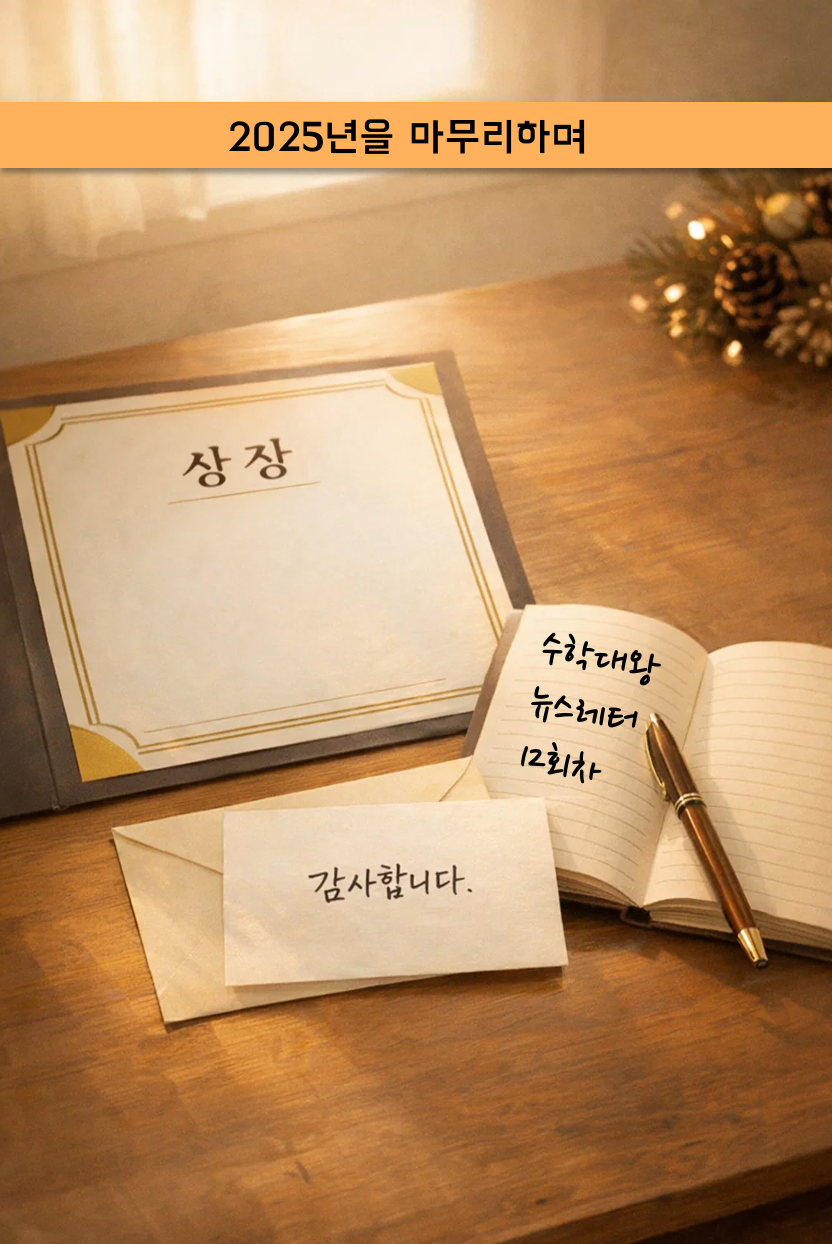 2025년을 마무리하며
상장
수학대왕
뉴스레터
12회차
감사합니다.